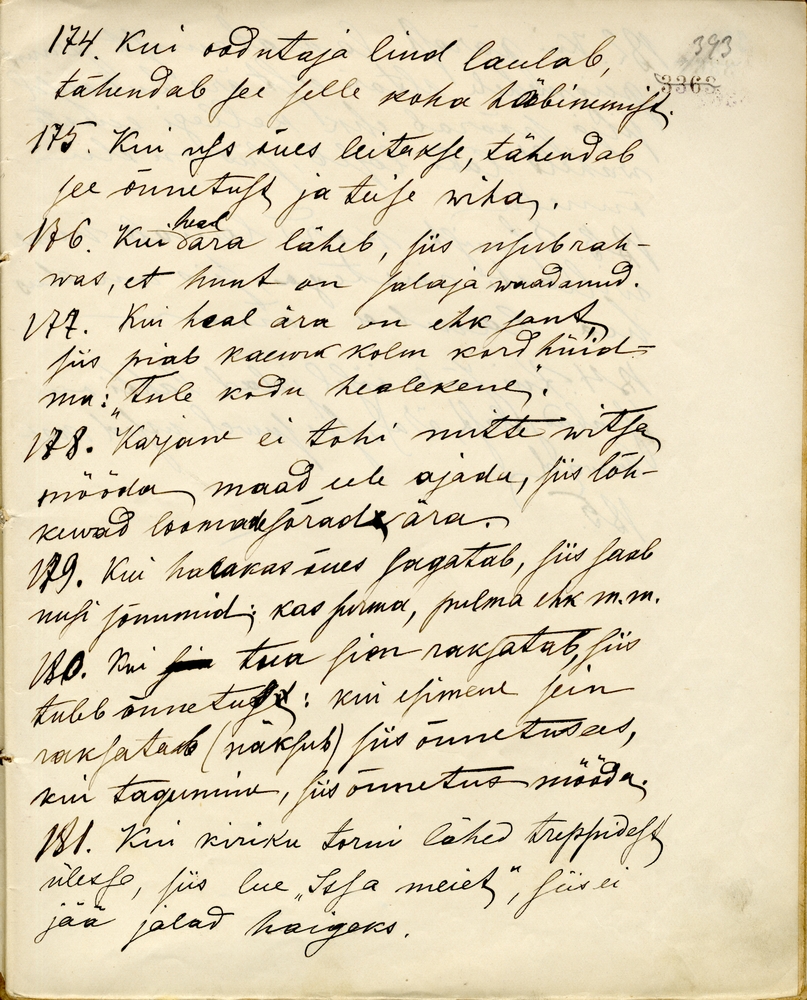 393
3363
174. Kui oodutaja lind laulab,
tähendab see selle koha häbinemist.
175. Kui uss õues leitakse, tähendab
see õnnetust ja teise wiha.
176. Kui heal ära läheb, siis usub rah-
was, et hunt on salaja waadanud.
177. Kui heal ära on ehk sant,
siis piab kaewu kolm kord hüid-
ma: „Tule kodu healekene“.
178. Karjane ei tohi mitte witsa
mööda maad eele ajada, siis lõh-
kewad loomade sõrad ära.
179. Kui harakas õues sagatab, siis saab
uusi sõnumid; kas surma, pulma ehk m.m.
180. Kui toa sein raksatab, siis
tuleb õnnetust: kui esimene sein
raksatab (näksub) siis õnnetus ees,
kui tagumine, siis õnnetus mööda.
181. Kui kiriku torni lähed treppidest
ülesse, siis lue „Issa meiet“, siis ei
jää jalad haigeks.